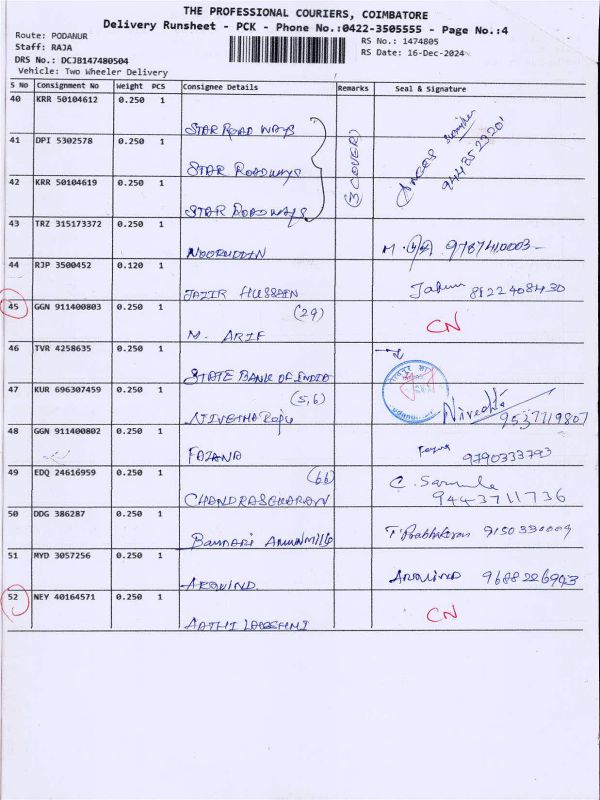 THE PROFESSIONAL COURIERS, COIMBATORE
Delivery Runsheet - PCK - Phone No.:0422-3505555 - Page No.:4
Route: PODANUR
Staff: RAJA
DRS No.: DCJB147480504
Vehicle: Two Wheeler Delivery
RS No.: 1474805
RS Date: 16-Dec-2024
S No Consignment No Weight PCS Consignee Details Remarks Seal & Signature
40 KRR 50104612 0.250 1
STAR ROAD WAYS
41 DPI 5302578 0.250 1
STAR ROADWAYS
(3 COVER)
42 KRR 50104619 0.250 1
STAR ROADWAYS
43 TRZ 315173372 0.250 1
NOORUDDIN
44 RJP 3500452 0.120 1
JAZIR HUSSAIN 8122408430
45 GGN 911400803 0.250 1
(29)
M. ARIF
CN
46 TVR 4258635 0.250 1
STATE BANK OF INDIA
47 KUR 696307459 0.250 1
(5,6)
Nivedha
9537719807
48 GGN 911400802 0.250 1
FAZANA 9790333793
49 EDQ 24616959 0.250 1
(66)
CHANDRASEKARAN
9443711736
50 DDG 386287 0.250 1
Bannari Amman Mills T Prabhakaran 9150330009
51 MYD 3057256 0.250 1
ARAVIND. ARAVIND 9688226943
52 NEY 40164571 0.250 1
AATHI LAKSHMI
CN